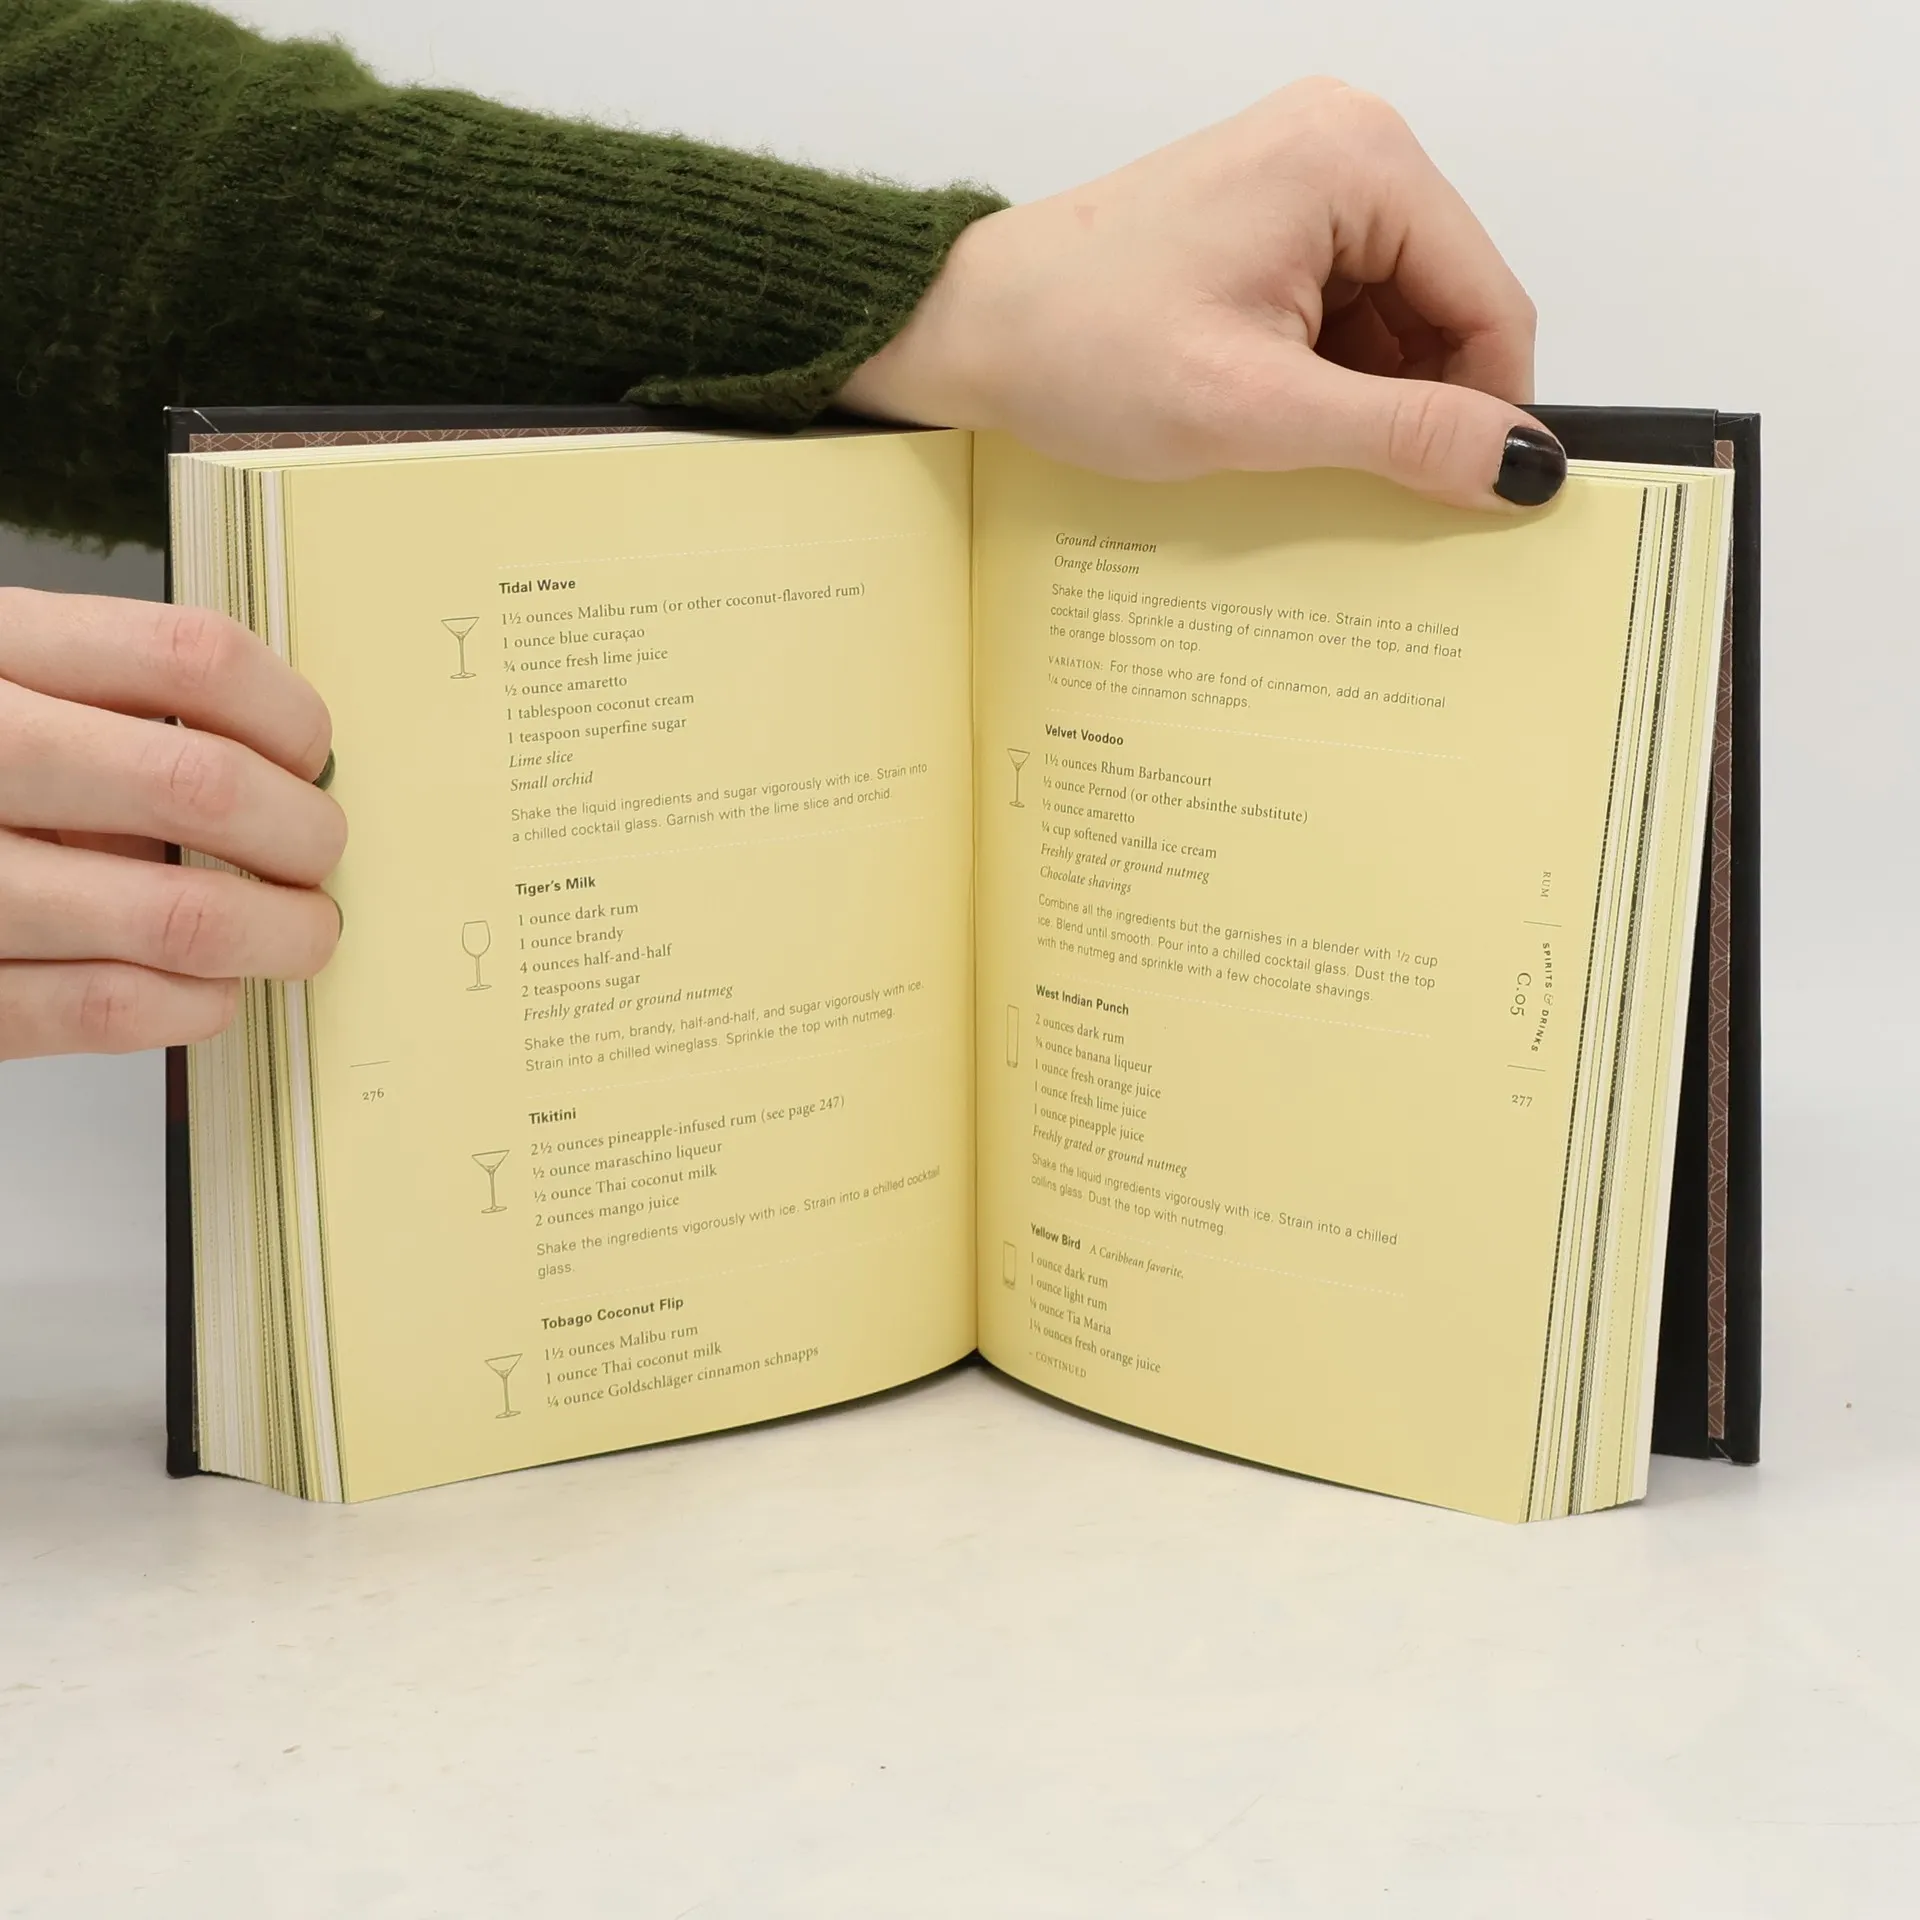 Tidal Wave
1½ ounces Malibu rum (or other coconut-flavored rum)
1 ounce blue curaçao
¾ ounce fresh lime juice
½ ounce amaretto
1 tablespoon coconut cream
1 teaspoon superfine sugar
Lime slice
Small orchid
Shake the liquid ingredients and sugar vigorously with ice. Strain into
a chilled cocktail glass. Garnish with the lime slice and orchid.
Tiger's Milk
1 ounce dark rum
1 ounce brandy
4 ounces half-and-half
2 teaspoons sugar
Freshly grated or ground nutmeg
Shake the rum, brandy, half-and-half, and sugar vigorously with ice.
Strain into a chilled wineglass. Sprinkle the top with nutmeg.
276
Tikitini
2½ ounces pineapple-infused rum (see page 247)
½ ounce maraschino liqueur
½ ounce Thai coconut milk
2 ounces mango juice
Shake the ingredients vigorously with ice. Strain into a chilled cocktail
glass.
Tobago Coconut Flip
1½ ounces Malibu rum
1 ounce Thai coconut milk
¼ ounce Goldschläger cinnamon schnapps
Ground cinnamon
Orange blossom
Shake the liquid ingredients vigorously with ice. Strain into a chilled
cocktail glass. Sprinkle a dusting of cinnamon over the top, and float
the orange blossom on top.
VARIATION: For those who are fond of cinnamon, add an additional
¼ ounce of the cinnamon schnapps.
Velvet Voodoo
1½ ounces Rhum Barbancourt
½ ounce Pernod (or other absinthe substitute)
½ ounce amaretto
¼ cup softened vanilla ice cream
Freshly grated or ground nutmeg
Chocolate shavings
Combine all the ingredients but the garnishes in a blender with ½ cup
ice. Blend until smooth. Pour into a chilled cocktail glass. Dust the top
with the nutmeg and sprinkle with a few chocolate shavings.
West Indian Punch
2 ounces dark rum
¾ ounce banana liqueur
1 ounce fresh orange juice
1 ounce fresh lime juice
1 ounce pineapple juice
Freshly grated or ground nutmeg
Shake the liquid ingredients vigorously with ice. Strain into a chilled
collins glass. Dust the top with nutmeg.
Yellow Bird A Caribbean favorite.
1 ounce dark rum
1 ounce light rum
ounce Tia Maria
1¼ ounces fresh orange juice
- CONTINUED
RUM
SPIRITS & DRINKS
C.05
277